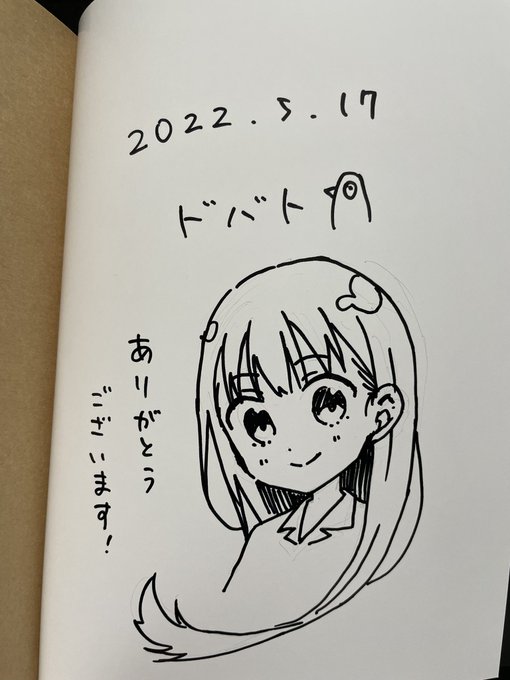 2022.5.17
ドバト
ありがとう
ございます!